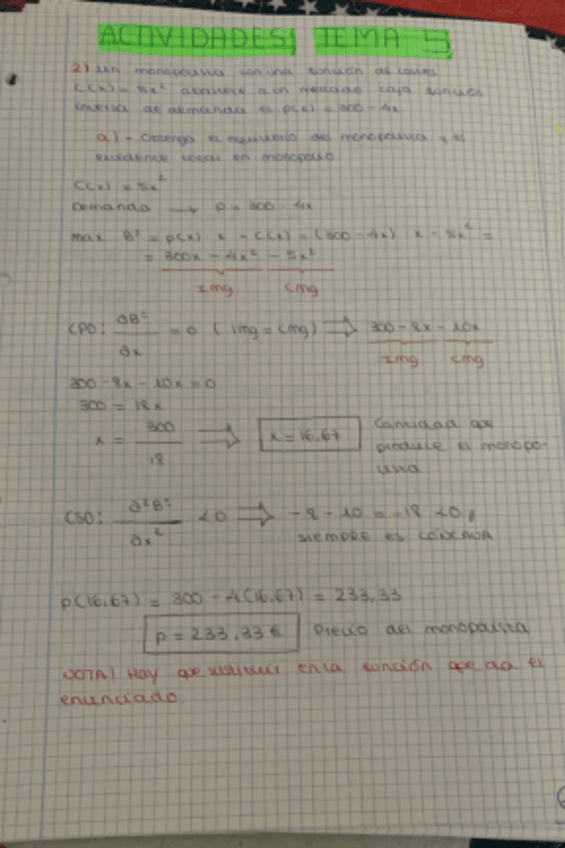 ACTIVIDADES TEMA 5
2) Un monopolista con una función de costes
C(x) = 5x² abastece a un mercado cuya función
inversa de demanda es p(x) = 300 - 4x
a) - Obtenga el equilibrio del monopolista y el
excedente social en monopolio
C(x) = 5x²
Demanda → p = 300 - 4x
max B² = p(x) · x - C(x) = (300 - 4x) · x - 5x² =
= 300x - 4x² - 5x²
Img Cmg
CPO: ∂B² / ∂x = 0 (Img = Cmg) ⟹ 300 - 8x - 10x
Img Cmg
300 - 8x - 10x = 0
300 = 18x
x = 300 / 18 ⟹ x = 16,67 Cantidad que
produce el monopo-
lista
CSO: ∂²B² / ∂x² < 0 ⟹ -8 - 10 = -18 < 0,
SIEMPRE ES CÓNCAVA
p(16,67) = 300 - 4(16,67) = 233,33
p = 233,33 € Precio del monopolista
NOTA! Hay que sustituir en la función que da el
enunciado.